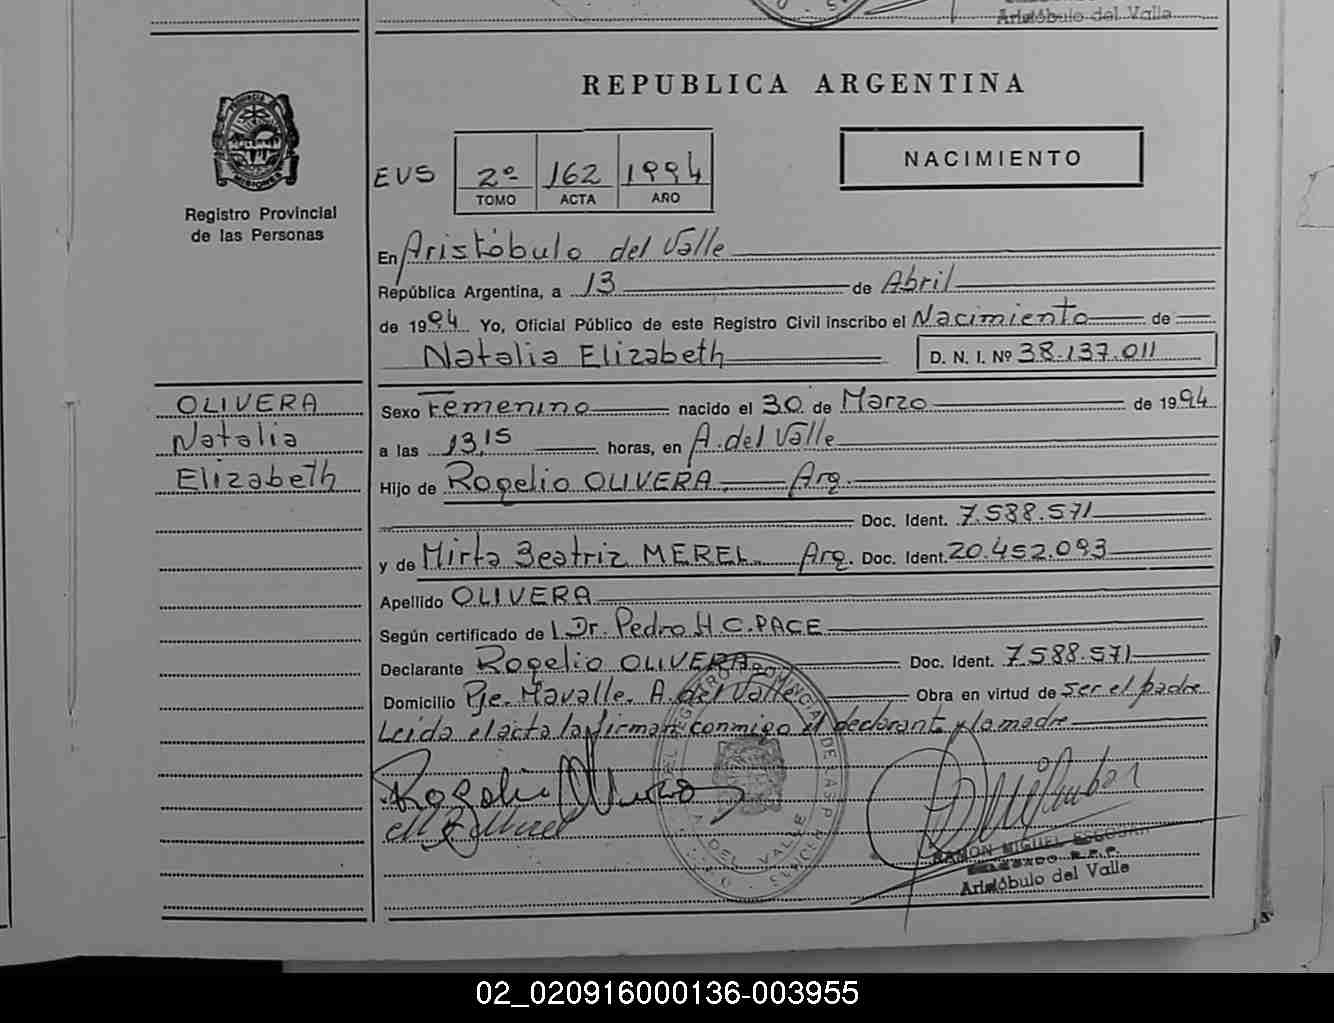 Aristóbulo del Valle
REPUBLICA ARGENTINA
PROVINCIA DE
MISIONES
Registro Provincial
de las Personas
NACIMIENTO
EUS 2º 162 1994
TOMO ACTA AÑO
En Aristóbulo del Valle
República Argentina, a 13 de Abril
de 1994 Yo, Oficial Público de este Registro Civil inscribo el Nacimiento de
Natalia Elizabeth D. N. I. Nº 38.137.011
OLIVERA
Natalia
Elizabeth
Sexo Femenino nacido el 30 de Marzo de 1994
a las 13,15 horas, en A. del Valle
Hijo de Rogelio OLIVERA Arg.
Doc. Ident. 7.588.571
y de Mirta Beatriz MEREL Arg. Doc. Ident. 20.452.093
Apellido OLIVERA
Según certificado de l Dr. Pedro H.C.PACE
Declarante Rogelio OLIVERA Doc. Ident. 7.588.571
Domicilio Pje. Mavalle. A. del Valle Obra en virtud de ser el padre
Leida el acta la firman conmigo el declarant. y la madre
Rogelio Olivera
REGISTRO PROVINCIAL DE LAS PERSONAS
A. DEL VALLE
RAMON MIGUEL ESCOBAR
R.P.P.
Aristóbulo del Valle
02_020916000136-003955